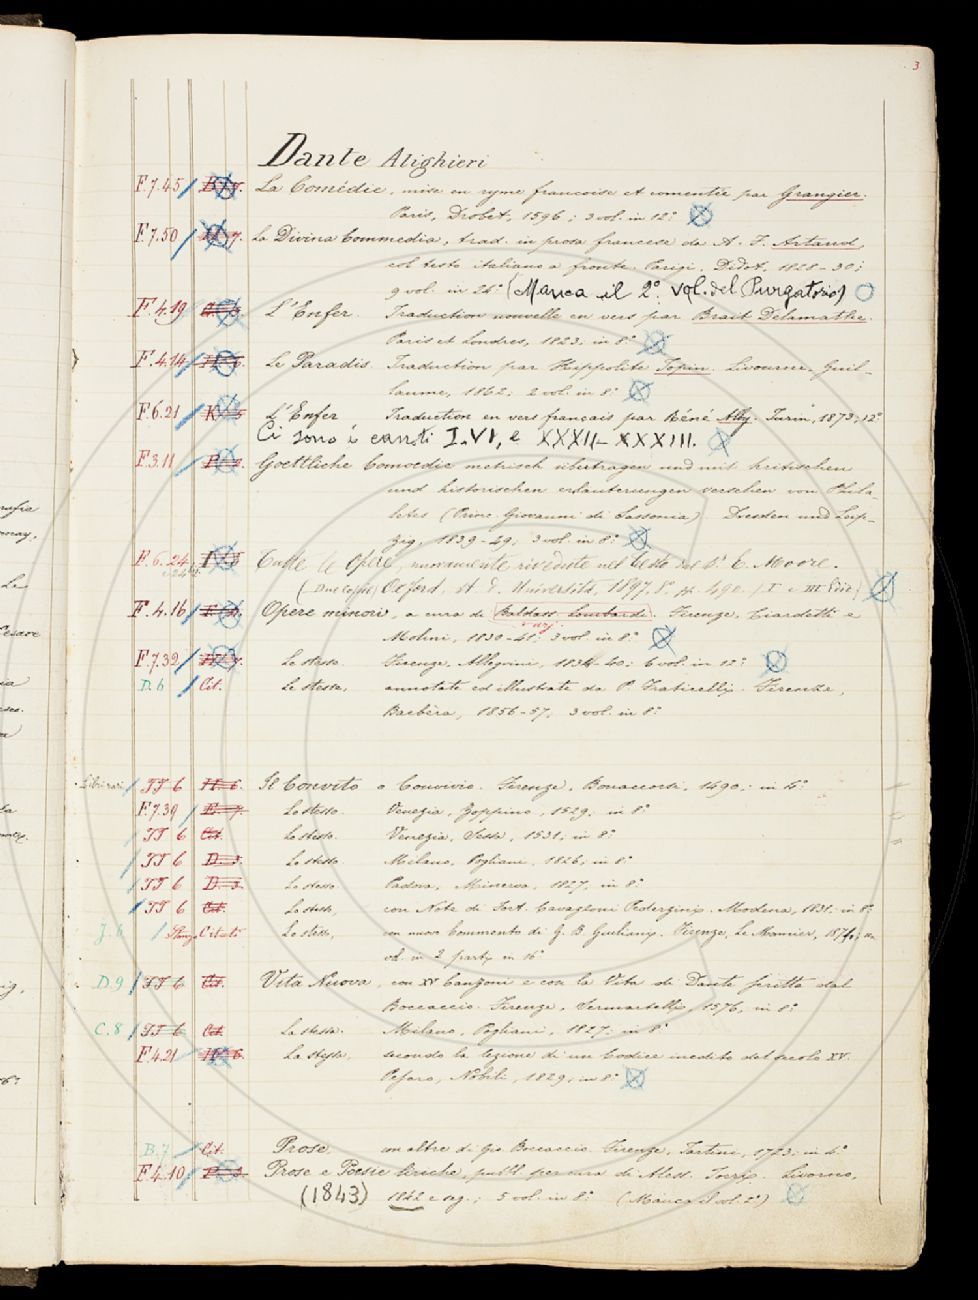 3
Dante Alighieri
F.7.45 La Comédie, mise en ryme francoise et comentée par Grangier.
Paris, Drobet, 1596; 3 vol. in 12°
F.7.50 La Divina Commedia, trad. in prosa francese da A. F. Artaud,
col testo italiano a fronte. Parigi, Didot, 1828-30;
9 vol. in 26° (Manca il 2° vol. del Purgatorio)
F.4.19 L'Enfer. Traduction nouvelle en vers par Brait Delamathe.
Paris et Londres, 1823; in 8°
F.4.14 Le Paradis. Traduction par Hyppolite Topin. Livourne, Guil-
laume, 1862; 2 vol. in 8°
F.6.21 L'Enfer Traduction en vers francais par Réné Alby. Turin, 1873; 12°
Ci sono i canti I-VI, e XXXII-XXXIII.
F.3.11 Goettliche Comoedie metrisch übertragen und mit kritischen
und historischen erläuterungen versehen von Phila-
letes (Princ. Giovanni di Sassonia) Dresden und Leip-
zig, 1839-49; 3 vol. in 8°
F.6.24 Tutte le Opere, nuovamente rivedute nel testo dal Dr. E. Moore.
(Due Copie) Oxford, 1897, 8° pp. 490.
F.4.16 Opere minori, a cura di Baldass. Lombardi. Firenze, Ciardetti e
varj
Molini, 1830-41; 3 vol. in 8°
F.7.32 Le stesse. Firenze, Allegrini, 1834-40; 6 vol. in 12°
D.6 Cit. Le stesse, annotate ed illustrate da P. Fraticelli. Firenze,
Barbèra, 1856-57, 3 vol. in 8°
TT 6 H.6. Il Convito o Convivio. Firenze, Bonaccorsi, 1490; in 4°
F.7.39 Lo stesso. Venezia, Zoppino, 1529; in 8°
TT 6 Cit. Lo stesso. Venezia, Sessa, 1531; in 8°
TT 6 D.3. Lo stesso. Milano, Pogliani, 1826, in 8°
TT 6 D.3. Lo stesso. Padova, Minerva, 1827, in 8°
TT 6 Cit. Lo stesso, con Note di Fort. Cavazzoni Pederzini. Modena, 1831; in 8°
J.6 Stanza Citati Lo stesso, con nuovo Commento di G. B. Giuliani. Firenze, Le Monnier, 1874; un
vol. in 2 parti in 16°
D.9 TT 6 Cit. Vita Nuova, con XV Canzoni e con la Vita di Dante scritta dal
Boccaccio. Firenze, Sermartelli, 1576, in 8°
C.8 TT 6 Cit. La stessa. Milano, Pogliani, 1827; in 8°
F.4.21 La stessa, secondo la lezione di un Codice inedito del secolo XV.
Pesaro, Nobili, 1829, in 8°
B.7 Cit. Prose, con altre di Gio. Boccaccio. Firenze, Tartini, 1723, in 4°
F.4.10 Prose e Poesie liriche, pubbl. per cura di Aless. Torri. Livorno,
(1843) 1842 e seg.; 5 vol. in 8° (Manca il vol. 2°)